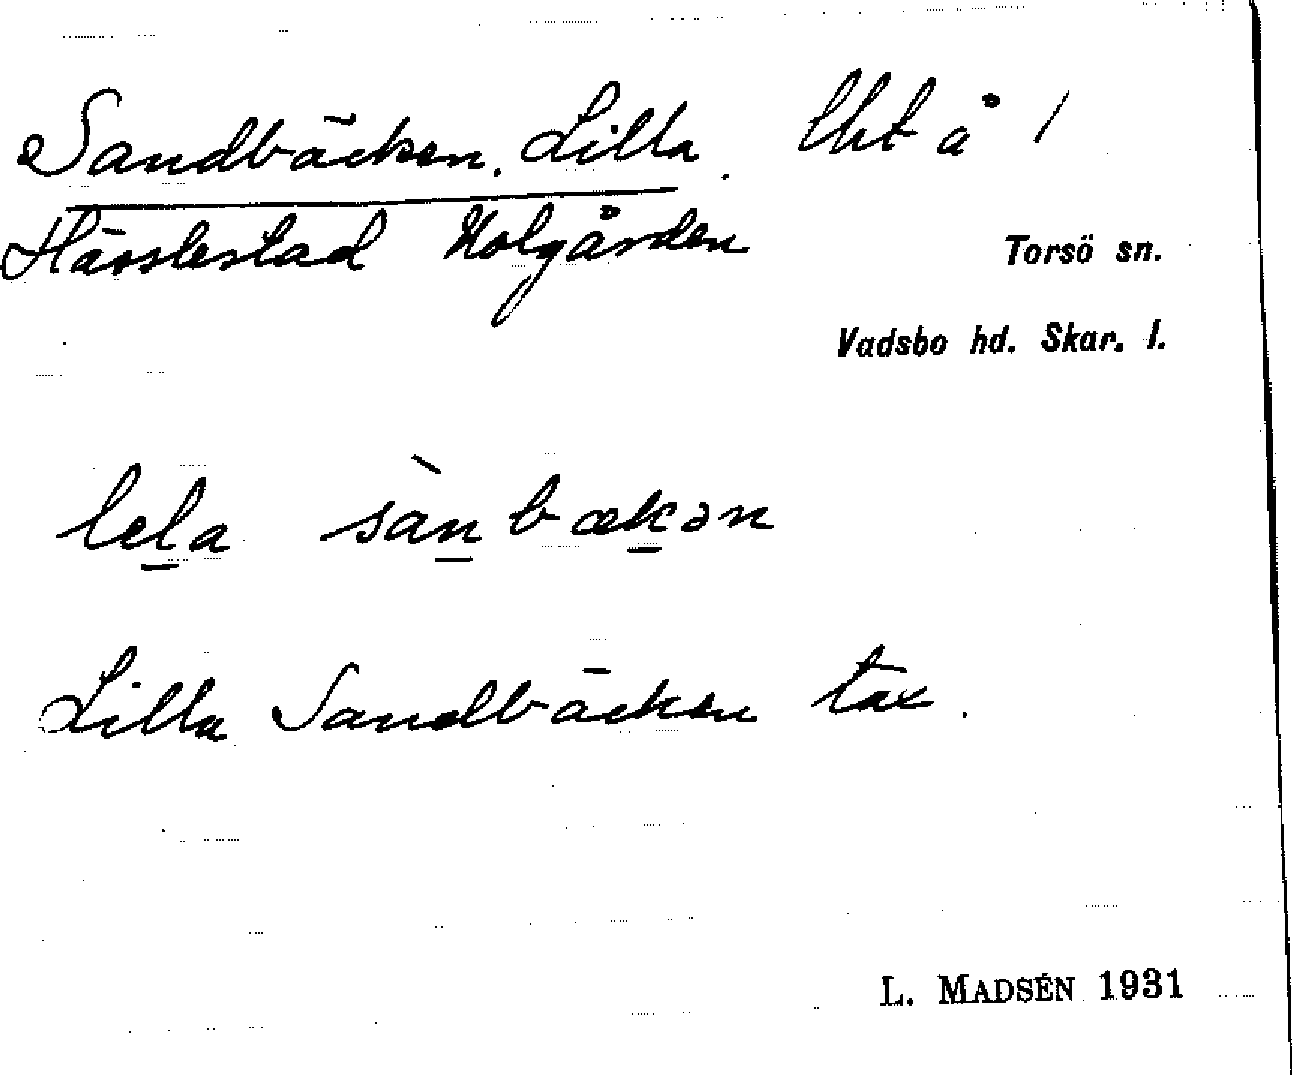 Sandbäcken, Lilla. lht å 1
Hässlestad Nolgården
Torsö sn.
Vadsbo hd. Skar. l.
lela sànbækən
Lilla Sandbäcken tax.
L. MADSÉN 1931